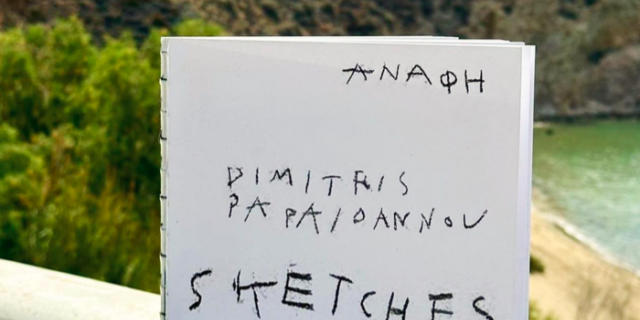 ΑΝΑΦΗ
DIMITRIS
PAPAIOANNOU
SKETCHES